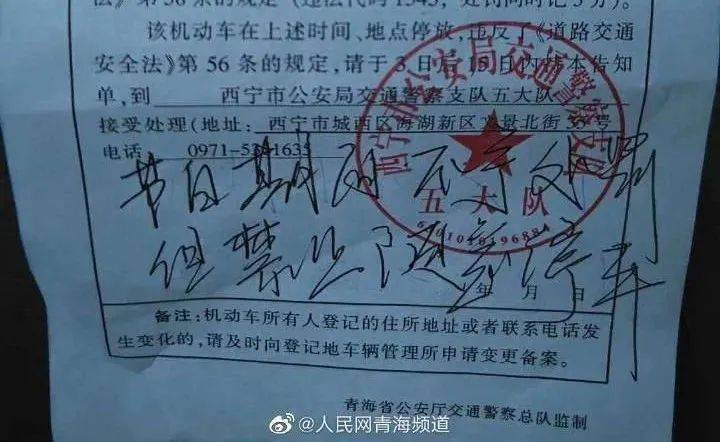 法》第 56 条的规定（违法代码 1345，处罚同时记 3 分）。
该机动车在上述时间、地点停放，违反了《道路交通
安全法》第 56 条的规定，请于 3 日后 15 日内持本告知
单，到 西宁市公安局交通警察支队五大队
接受处理（地址： 西宁市城西区海湖新区文景北街 号
电话： 0971-
西宁市公安局交通警察支队
五大队
节日期间不予处罚
但禁止随意停车
年 月 日
备注：机动车所有人登记的住所地址或者联系电话发
生变化的，请及时向登记地车辆管理所申请变更备案。
青海省公安厅交通警察总队监制
@人民网青海频道